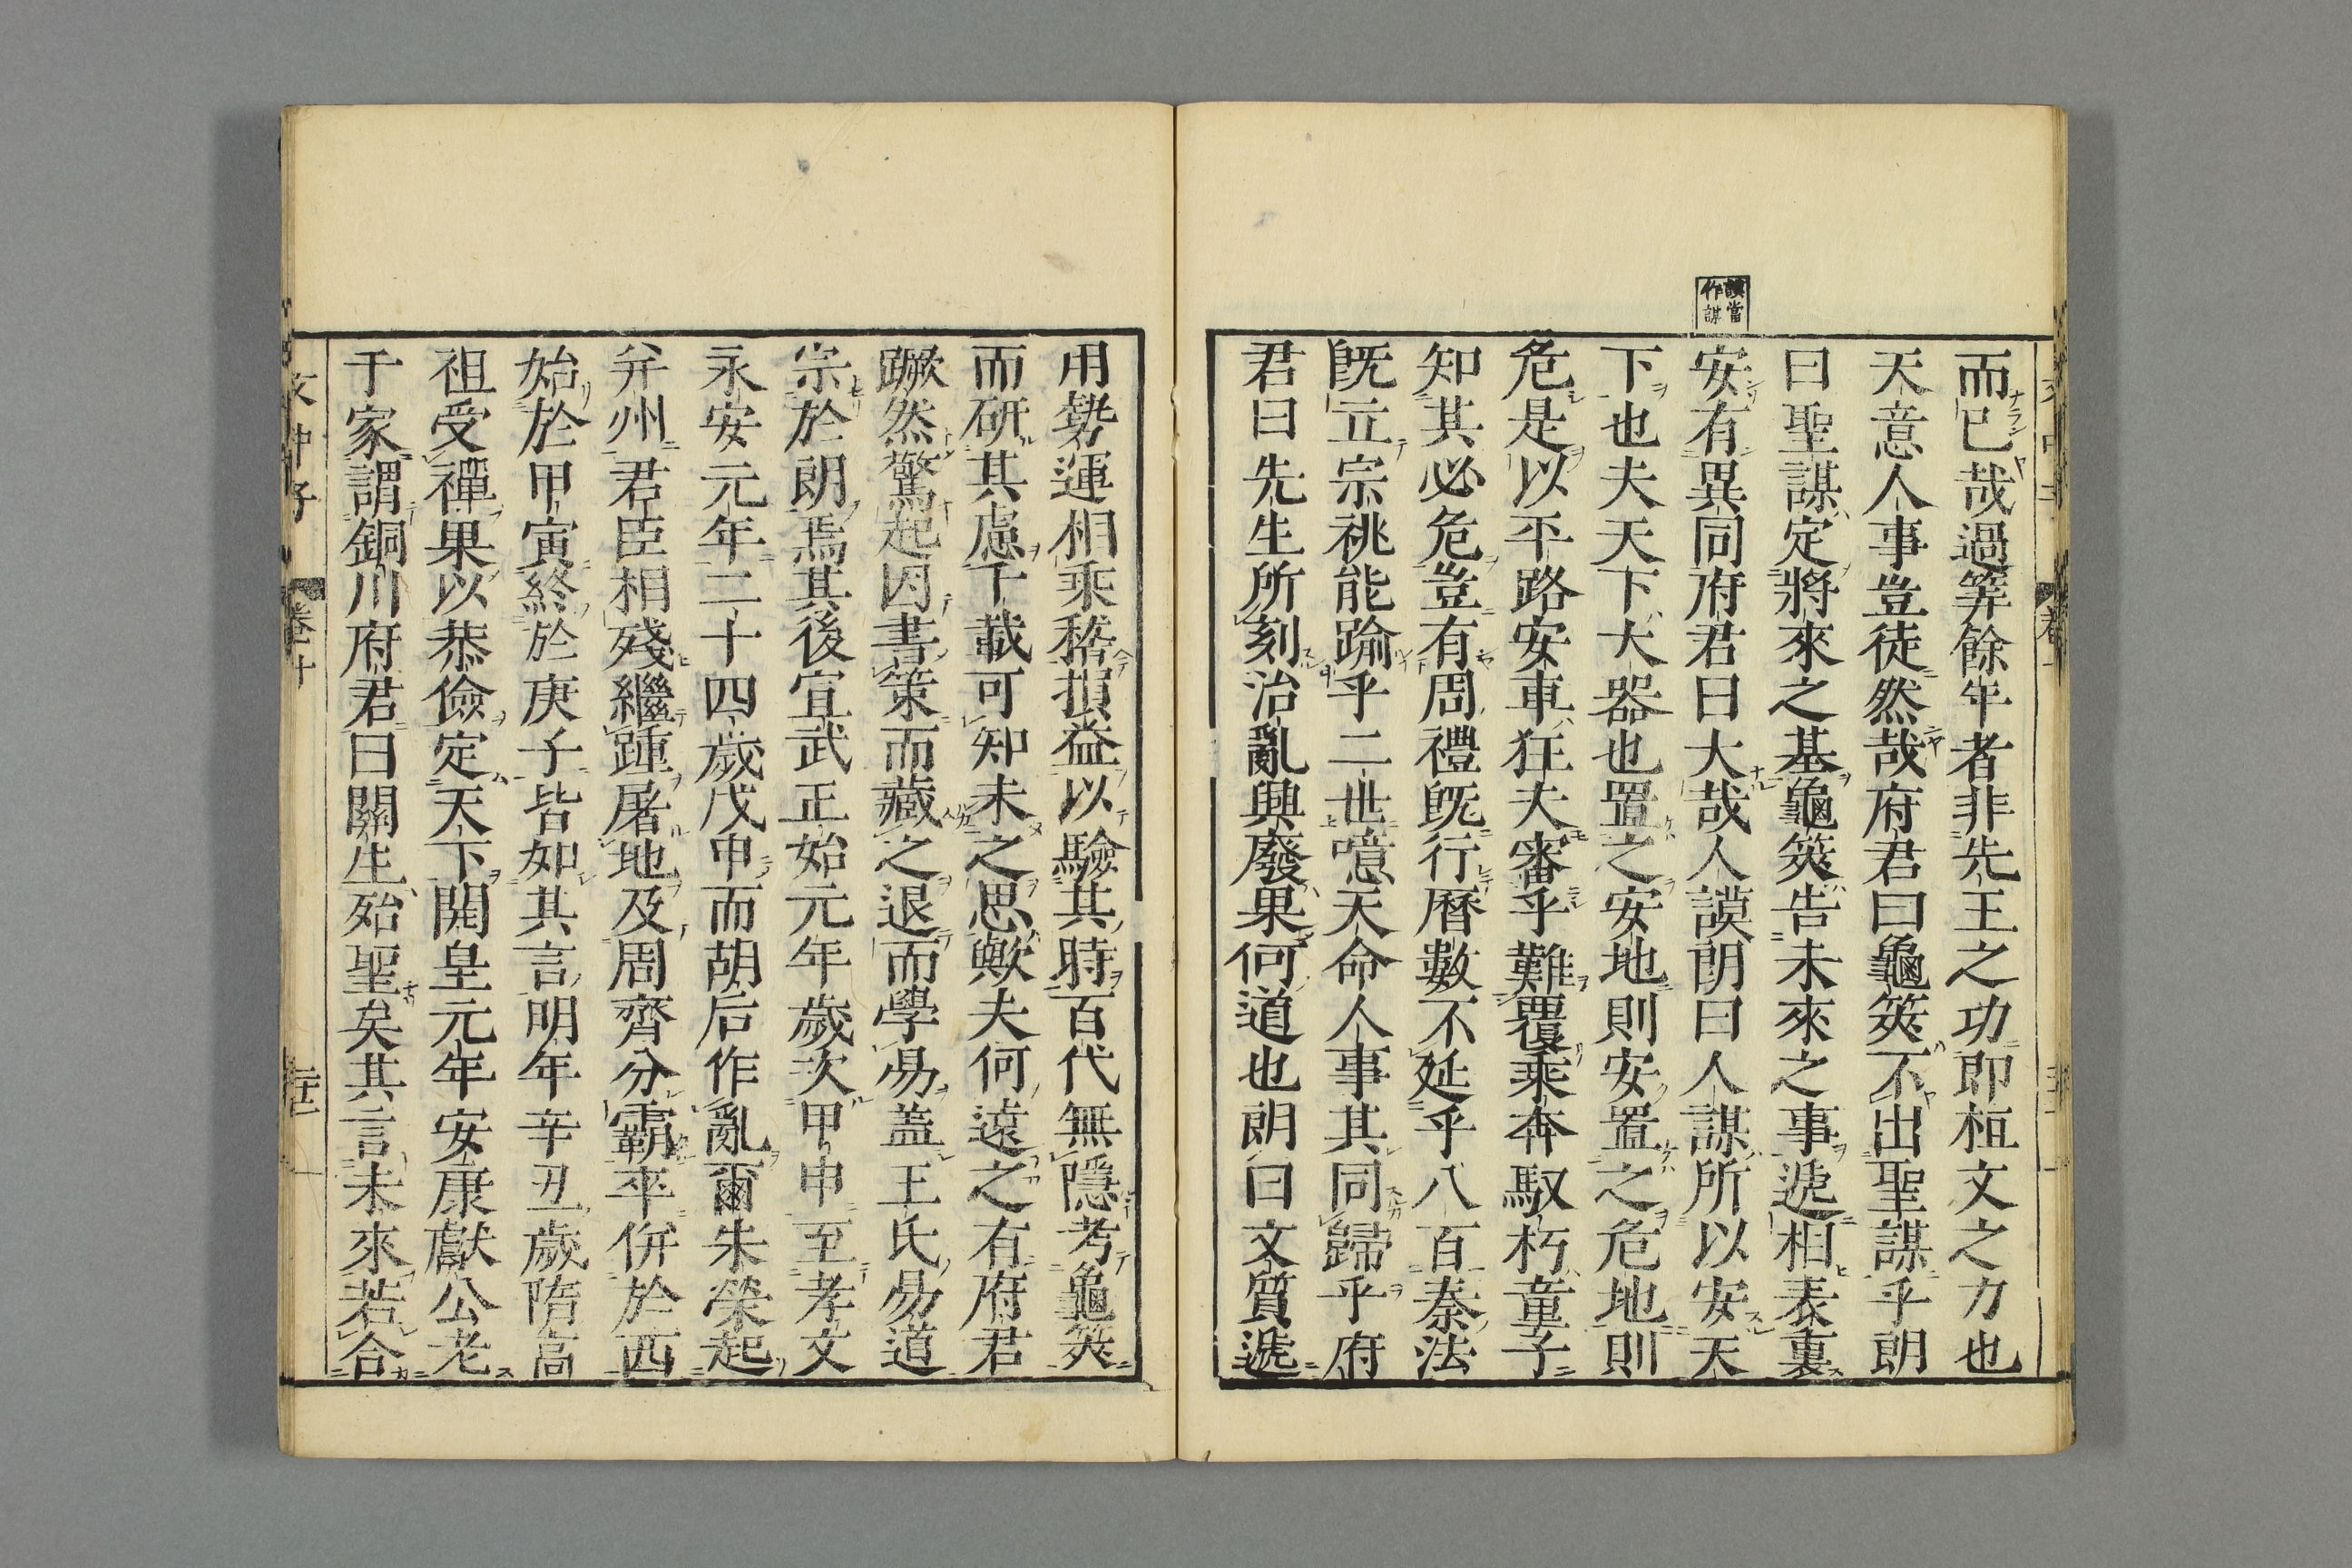 謨當
作謀
而已哉過筭餘年者非先王之功即桓文之力也
天意人事豈徒然哉府君曰龜筴不出聖謀乎朗
曰聖謀定將來之基龜筴告未來之事遞相表裏
安有異同府君曰大哉人謨朗曰人謀所以安天
下也夫天下大器也置之安地則安置之危地則
危是以平路安車狂夫審乎難覆乘奔馭朽童子
知其必危豈有周禮既行曆數不延乎八百秦法
既立宗祧能踰乎二世噫天命人事其同歸乎府
君曰先生所刻治亂興廢果何道也朗曰文質遞
用勢運相乘稽損益以驗其時百代無隱考龜筴
而研其慮千載可知未之思歟夫何遠之有府君
蹶然驚起因書策而藏之退而學易蓋王氏易道
宗於朗焉其後宣武正始元年歲次甲申至孝文
永安元年二十四歲戊申而胡后作亂爾朱榮起
并州君臣相殘繼踵屠地及周齊分霸卒併於西
始於甲寅終於庚子皆如其言明年辛丑歲隋高
祖受禪果以恭儉定天下開皇元年安康獻公老
于家謂銅川府君曰關生殆聖矣其言未來若合
文中子
卷十